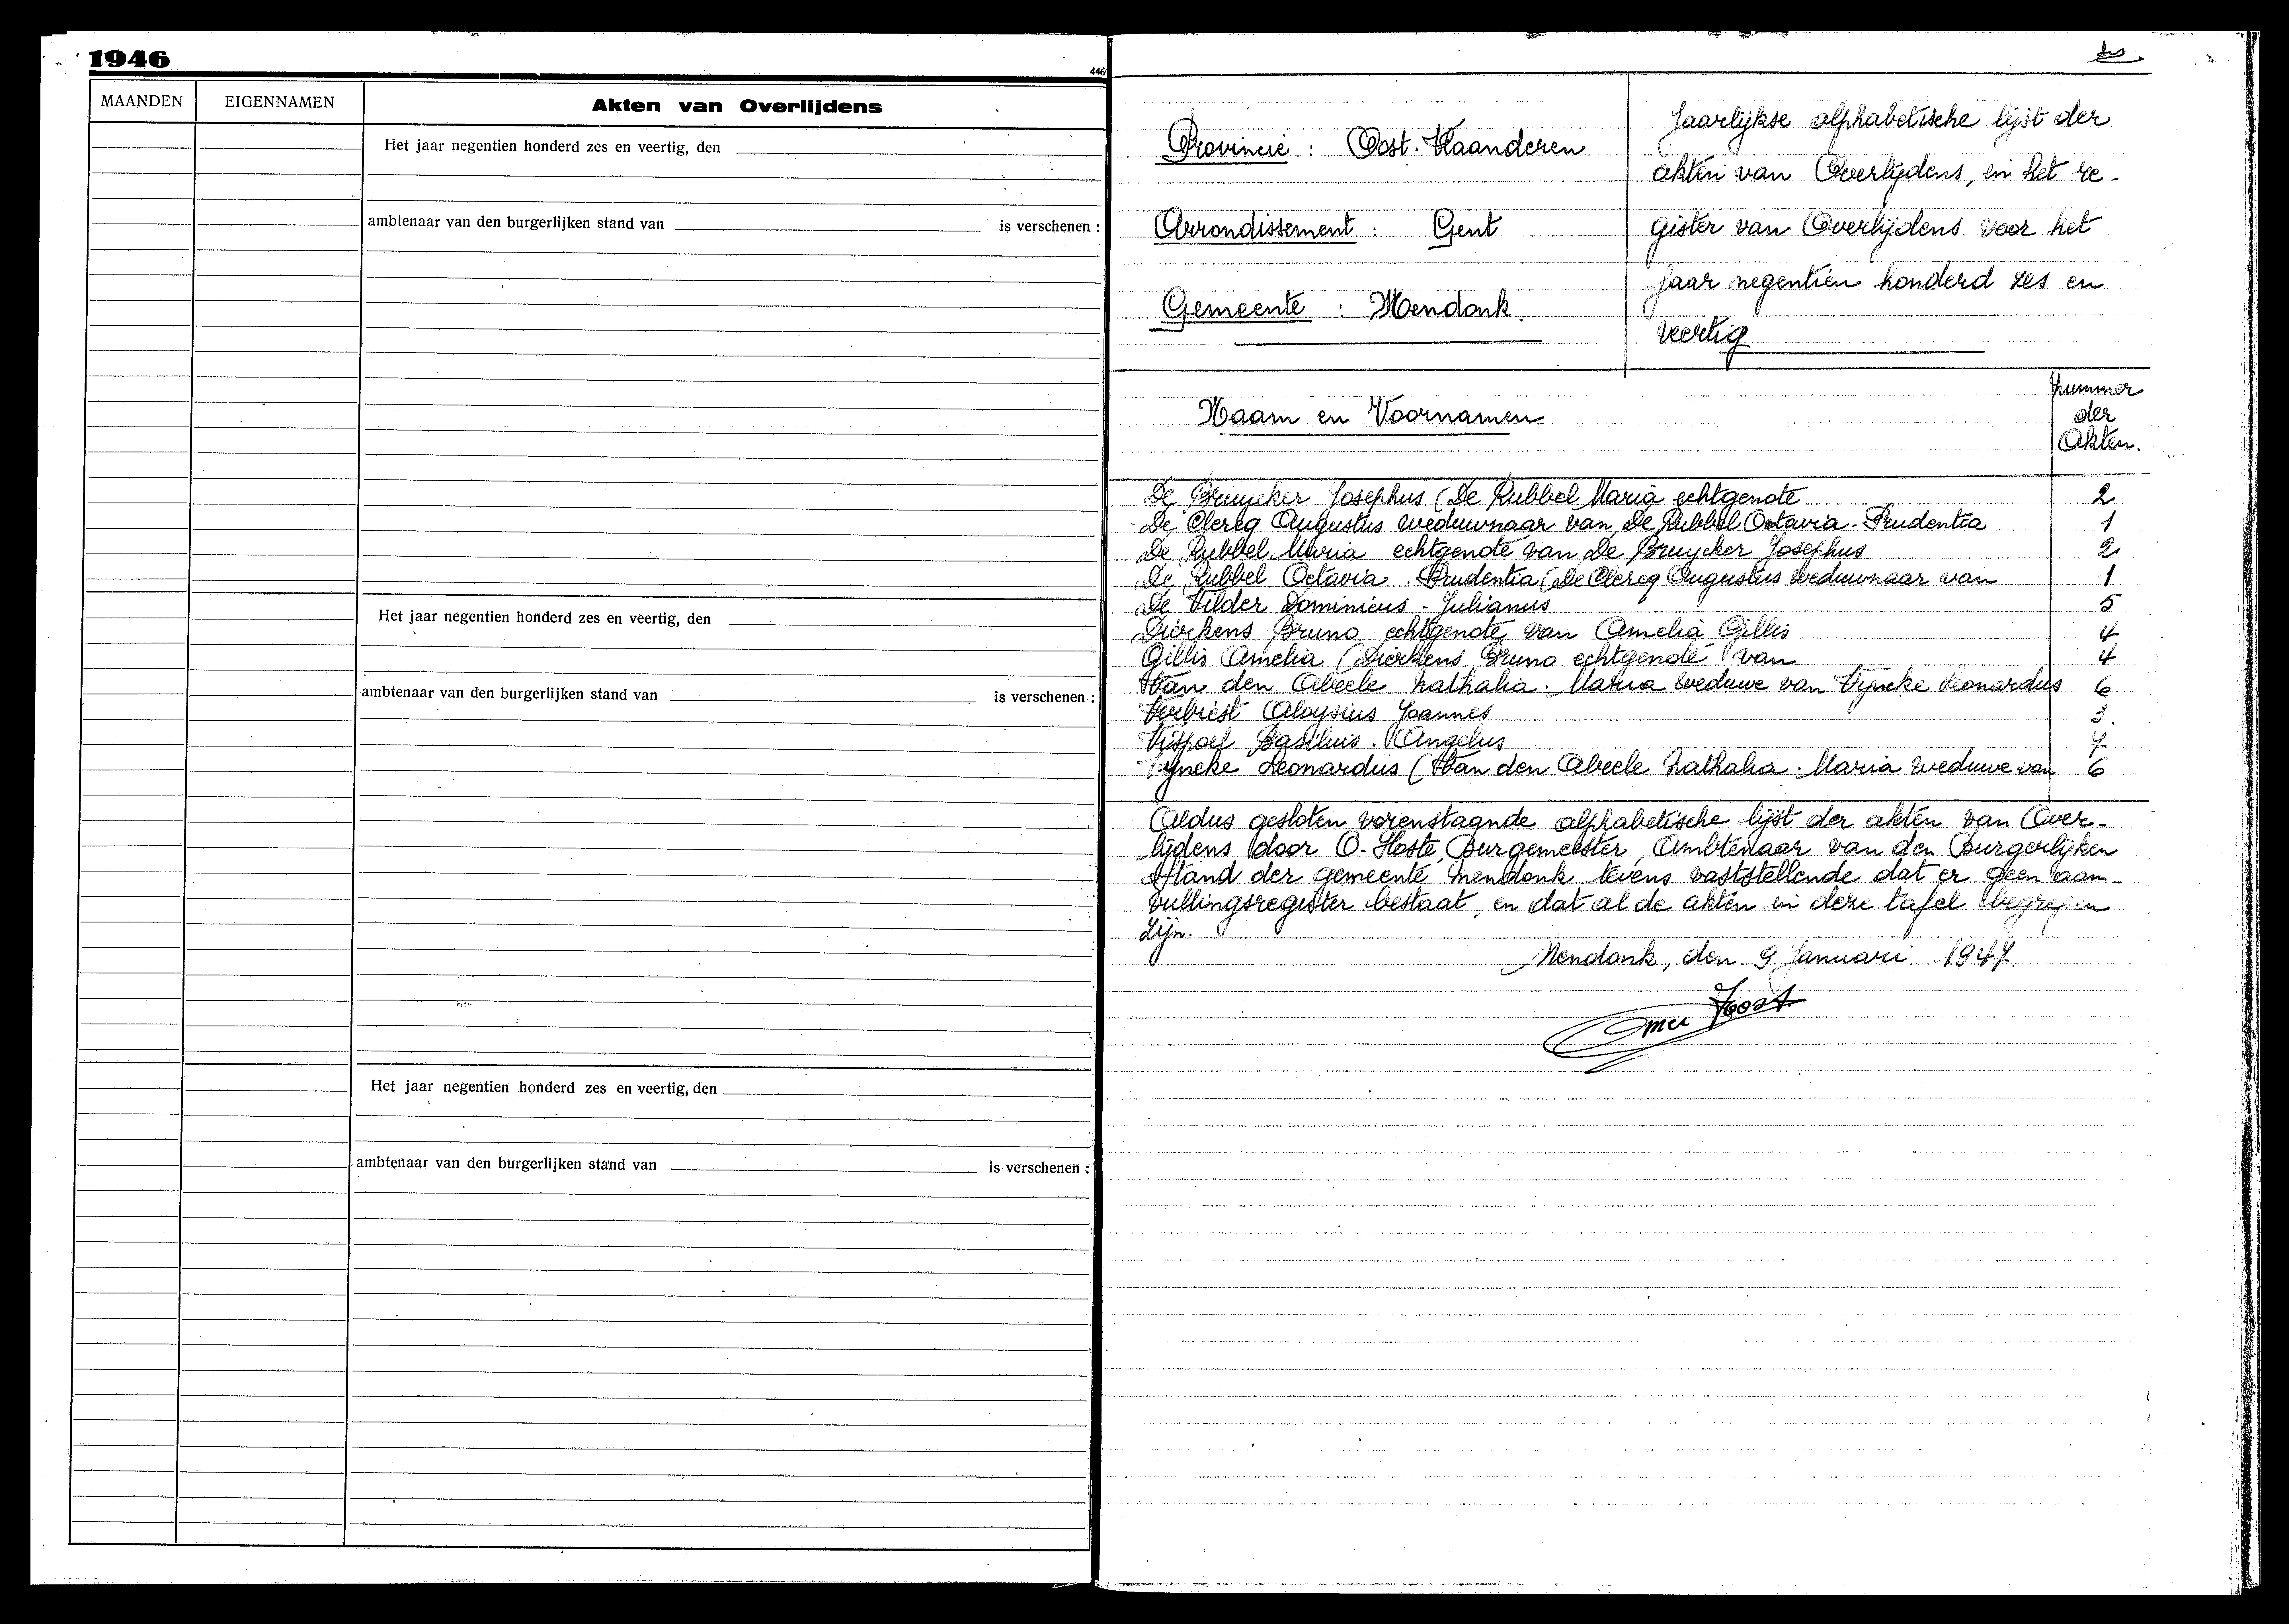 1946
446
MAANDEN EIGENNAMEN Akten van Overlijdens
Het jaar negentien honderd zes en veertig, den
ambtenaar van den burgerlijken stand van is verschenen :
Het jaar negentien honderd zes en veertig, den
ambtenaar van den burgerlijken stand van is verschenen :
Het jaar negentien honderd zes en veertig, den
ambtenaar van den burgerlijken stand van is verschenen :
Provincie : Oost-Vlaanderen
Arrondissement : Gent
Gemeente : Mendonk
Jaarlijkse alphabetische lijst der
akten van Overlijdens, en het re-
gister van Overlijdens voor het
jaar negentien honderd zes en
veertig
Naam en Voornamen
Nummer
der
Akten.
De Bruycker Josephus (De Rubbel Maria echtgenote 2
De Clercq Augustus weduwnaar van De Rubbel Octavia-Prudentia 1
De Rubbel Maria echtgenote van De Bruycker Josephus 2
De Rubbel Octavia-Prudentia (De Clercq Augustus weduwnaar van 1
De Vilder Dominicus-Julianus 5
Dierkens Bruno echtgenote van Amelia Gillis 4
Gillis Amelia (Dierkens Bruno echtgenote van 4
Van den Abeele Nathalia-Maria weduwe van Vyncke Leonardus 6
Verbiest Aloysius Joannes 3.
Vispoel Basiliuis-Angelus 7
Vyncke Leonardus (Van den Abeele Nathalia-Maria weduwe van 6
Aldus gesloten vorenstaande alphabetische lijst der akten van Over-
lijdens door O. Hoste, Burgemeester, Ambtenaar van den Burgerlijken
Stand der gemeente Mendonk tevens vaststellende dat er geen aan-
vullingsregister bestaat, en dat al de akten in deze tafel begrepen
zijn.
Mendonk, den 9 Januari 1947.